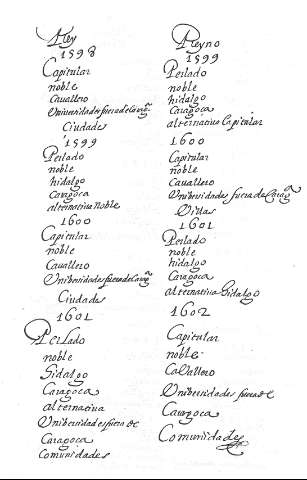 Rey
1598
Capitular
noble
Cauallero
Uniuersidades fuera de Carag.ça
Ciudades
1599
Perlado
noble
hidalgo
Caragoca
alternatiua noble
1600
Capitular
noble
Cauallero
Uniuersidades fuera de Carag.ça
Ciudades
1601
Perlado
noble
Hidalgo
Caragoca
alternatiua
Uniuersidades fuera de
Caragoca
Comunidades
Reyno
1599
Perlado
noble
hidalgo
Caragoca
alternatiua Capitular
1600
Capitular
noble
Cauallero
Uniuersidades fuera de Carag.ça
Villas
1601
Perlado
noble
hidalgo
Caragoca
alternatiua Hidalgo
1602
Capitular
noble
Cauallero
Uniuersidades fuera de
Caragoca
Comunidades